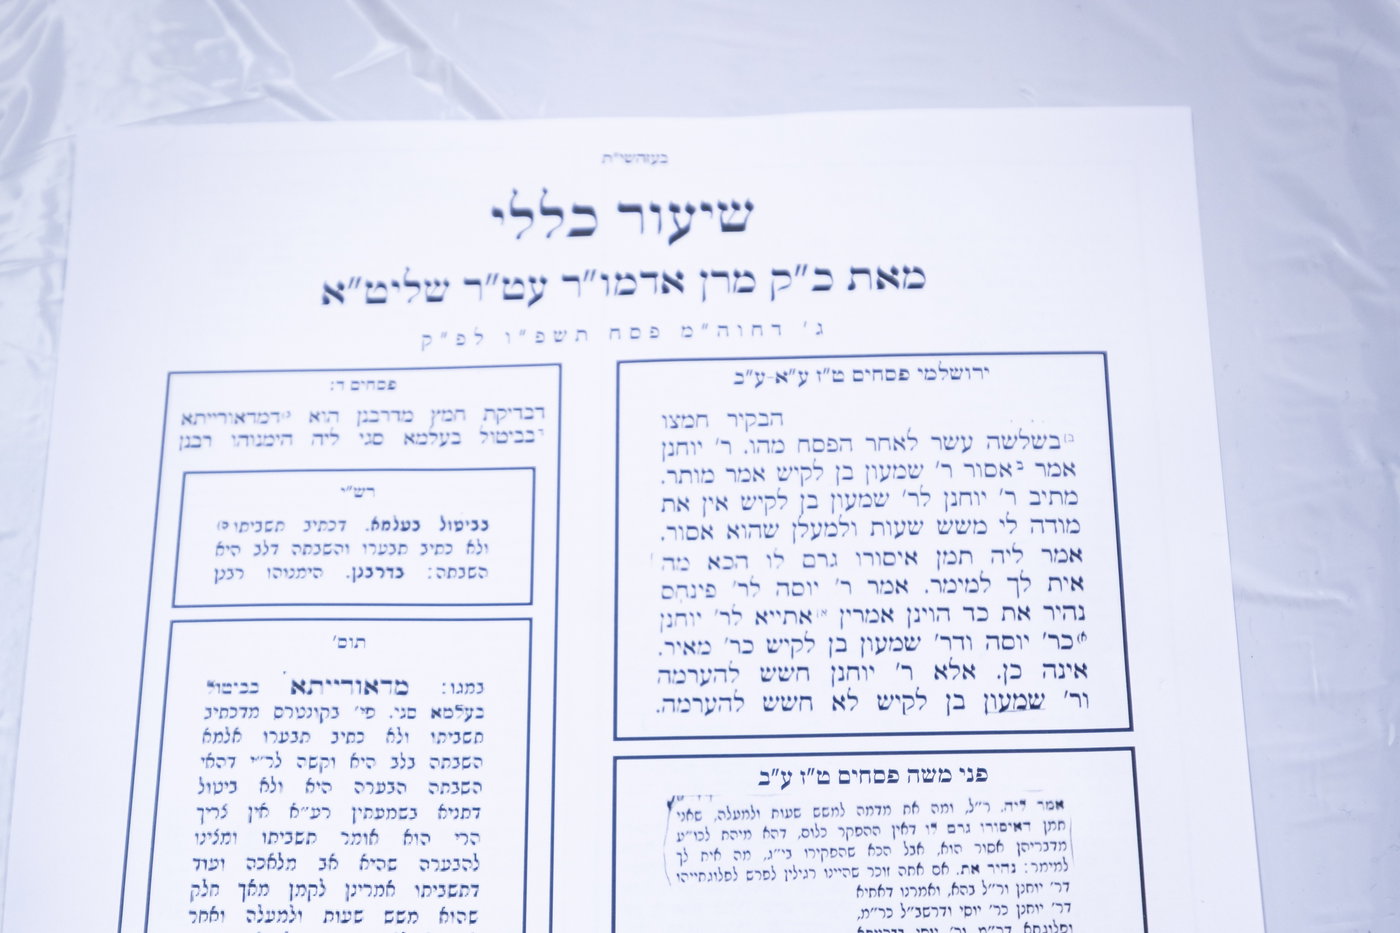 בעזהשי"ת
שיעור כללי
מאת כ"ק מרן אדמו"ר עט"ר שליט"א
ג' דחוה"מ פסח תשפ"ו לפ"ק
ירושלמי פסחים ט"ז ע"א-ע"ב
הבקיר חמצו
בשלשה עשר לאחר הפסח מהו. ר' יוחנן
אמר אסור ר' שמעון בן לקיש אמר מותר.
מתיב ר' יוחנן לר' שמעון בן לקיש אין את
מודה לי משש שעות ולמעלן שהוא אסור.
אמר ליה תמן איסורו גרם לו הכא מה
אית לך למימר. אמר ר' יוסה לר' פינחס
נהיר את כד הוינן אמרין אתייא לר' יוחנן
כר' יוסה ודר' שמעון בן לקיש כר' מאיר.
אינה כן. אלא ר' יוחנן חשש להערמה
ור' שמעון בן לקיש לא חשש להערמה.
פני משה פסחים ט"ז ע"ב
אמר ליה. ר"ל, ומה את מדמה למשש שעות ולמעלה, שאני
תמן דאיסורו גרם לו דאין ההפקר כלום, דהא מיהת לכו"ע
מדבריהן אסור הוא, אבל הכא שהפקירו בי"ג, מה אית לך
למימר: נהיר את. אם אתה זוכר שהיינו רגילין לפרש לפלוגתייהו
דר' יוחנן ור"ל בהא, ואמרנו דאתיא
דר' יוחנן כר' יוסי ודרשב"ל כר"מ,
פסחים ד:
דבדיקת חמץ מדרבנן הוא דמדאורייתא
בביטול בעלמא סגי ליה הימנוהו רבנן
רש"י
בביטול בעלמא. דכתיב תשביתו
ולא כתיב תבערו והשבתה דלב היא
השבתה: בדרבנן. הימנוהו רבנן
תוס'
במגו: מדאורייתא בביטול
בעלמא סגי. פי' בקונטרס מדכתיב
תשביתו ולא כתיב תבערו אלמא
השבתה בלב היא וקשה לר"י דהאי
השבתה הבערה היא ולא ביטול
דתניא בשמעתין רע"א אין צריך
הרי הוא אומר תשביתו ומצינו
להבערה שהיא אב מלאכה ועוד
דתשביתו אמרינן לקמן מאך חלק
שהוא משש שעות ולמעלה ואחר